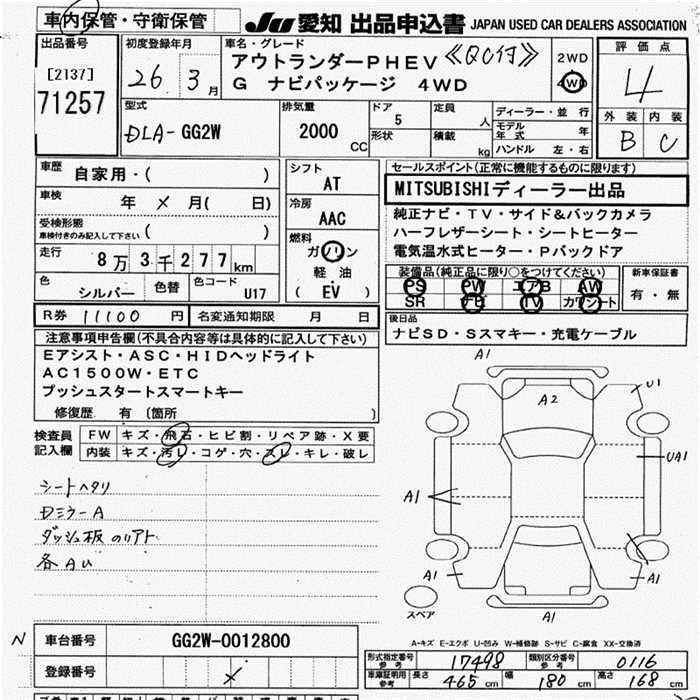 車内保管・守衛保管
JU 愛知 出品申込書 JAPAN USED CAR DEALERS ASSOCIATION
出品番号
[2137]
71257
初度登録年月
26 3月
車名・グレード
アウトランダーPHEV 《QC付》
G ナビパッケージ 4WD
2WD
4WD
評価点
4
外装 内装
B C
型式
DLA- GG2W
排気量
2000
CC
ドア
5
形状
定員
人
積載
kg
ディーラー・並行
モデル年式 年
ハンドル 左・右
車歴
自家用・( )
車検
年 × 月( 日)
受検形態
車検付きのみ記入して下さい ( )
走行
8万3千277km
色
シルバー
色替
色コード
U17
シフト
AT
冷房
AAC
燃料
ガソリン
軽油
( EV )
セールスポイント(正常に機能するものに限ります)
MITSUBISHIディーラー出品
純正ナビ・TV・サイド&バックカメラ
ハーフレザーシート・シートヒーター
電気温水式ヒーター・Pバックドア
装備品(純正品に限り○をつけてください)
PS PW エアB AW
SR ナビ TV カワシート
新車保証書
有・無
R券 11100 円
名変通知期限 月 日
後日品
ナビSD・Sスマキー・充電ケーブル
注意事項申告欄(不具合内容等は具体的に記入して下さい)
Eアシスト・ASC・HIDヘッドライト
AC1500W・ETC
プッシュスタートスマートキー
修復歴 有 〔箇所 〕
検査員記入欄
FW キズ・飛石・ヒビ割・リペア跡・X要
内装 キズ・汚レ・コゲ・穴・スレ・キレ・破レ
シートヘタリ
Dミラー A
ダッシュ板 のリアト
各AU
A1
A2
U1
UA1
A1
A1
A1
A1
スペア
A-キズ E-エクボ U-凹み W-補修跡 S-サビ C-腐食 XX-交換済
N
車台番号
GG2W-0012800
登録番号
×
形式指定番号 参考 17498
類別区分番号 参考 0116
車庫証明用 参考 長さ 465 cm 幅 180 cm 高さ 168 cm